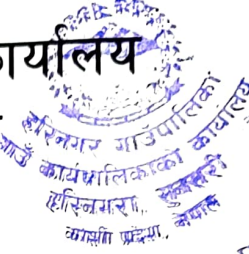 र्यालय
हरिनगर गाउँपालिका
गाउँ कार्यपालिकाको कार्यालय
हरिनगरा, सुनसरी
कोशी प्रदेश, नेपाल